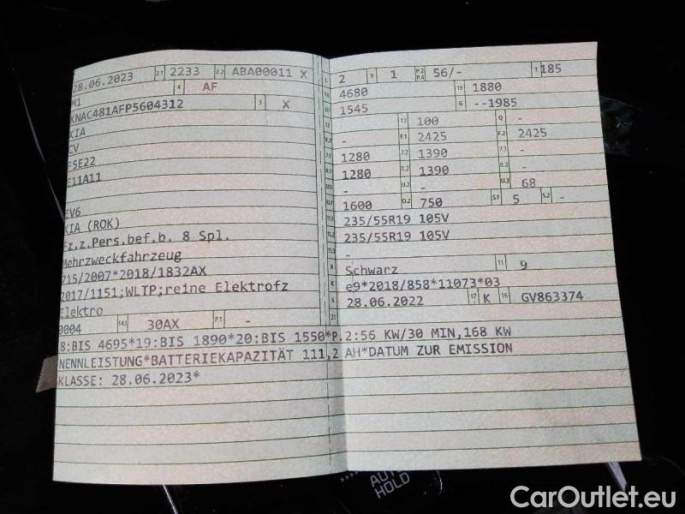 28.06.2023 2.1 2233 2.2 ABA00011 X
M1 4 AF
KNAC481AFP5604312 3 X
KIA
CV
F5E22
E11A11
EV6
KIA (ROK)
Fz.z.Pers.bef.b. 8 Spl.
Mehrzweckfahrzeug
715/2007*2018/1832AX
2017/1151;WLTP;reine Elektrofz
Elektro
0004 30AX -
2 9 1 P.2 P.4 56/- 185
4680 1880
1545 G --1985
100 Q -
2425 2425
1280 1390 -
1280 1390 -
- - 68
1600 750 5 -
235/55R19 105V
235/55R19 105V
-
Schwarz 11 9
e9*2018/858*11073*03
28.06.2022 17 K 16 GV863374
8:BIS 4695*19:BIS 1890*20:BIS 1550*P.2:56 KW/30 MIN,168 KW
NENNLEISTUNG*BATTERIEKAPAZITÄT 111,2 AH*DATUM ZUR EMISSION
KLASSE: 28.06.2023*
AUTO
HOLD
CarOutlet.eu